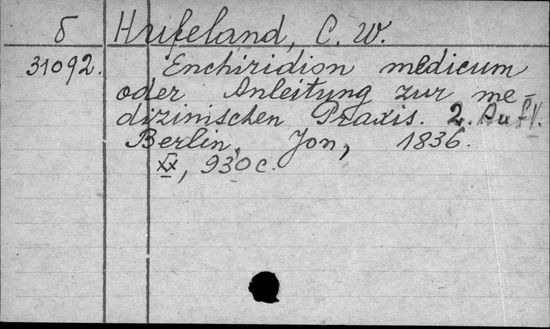 б Hufeland, C. W.
31092. Enchiridion medicum
oder Anleitung zur me-
dizinischen Praxis. 2. Aufl.
Berlin, Jon, 1836.
XX, 930 c.